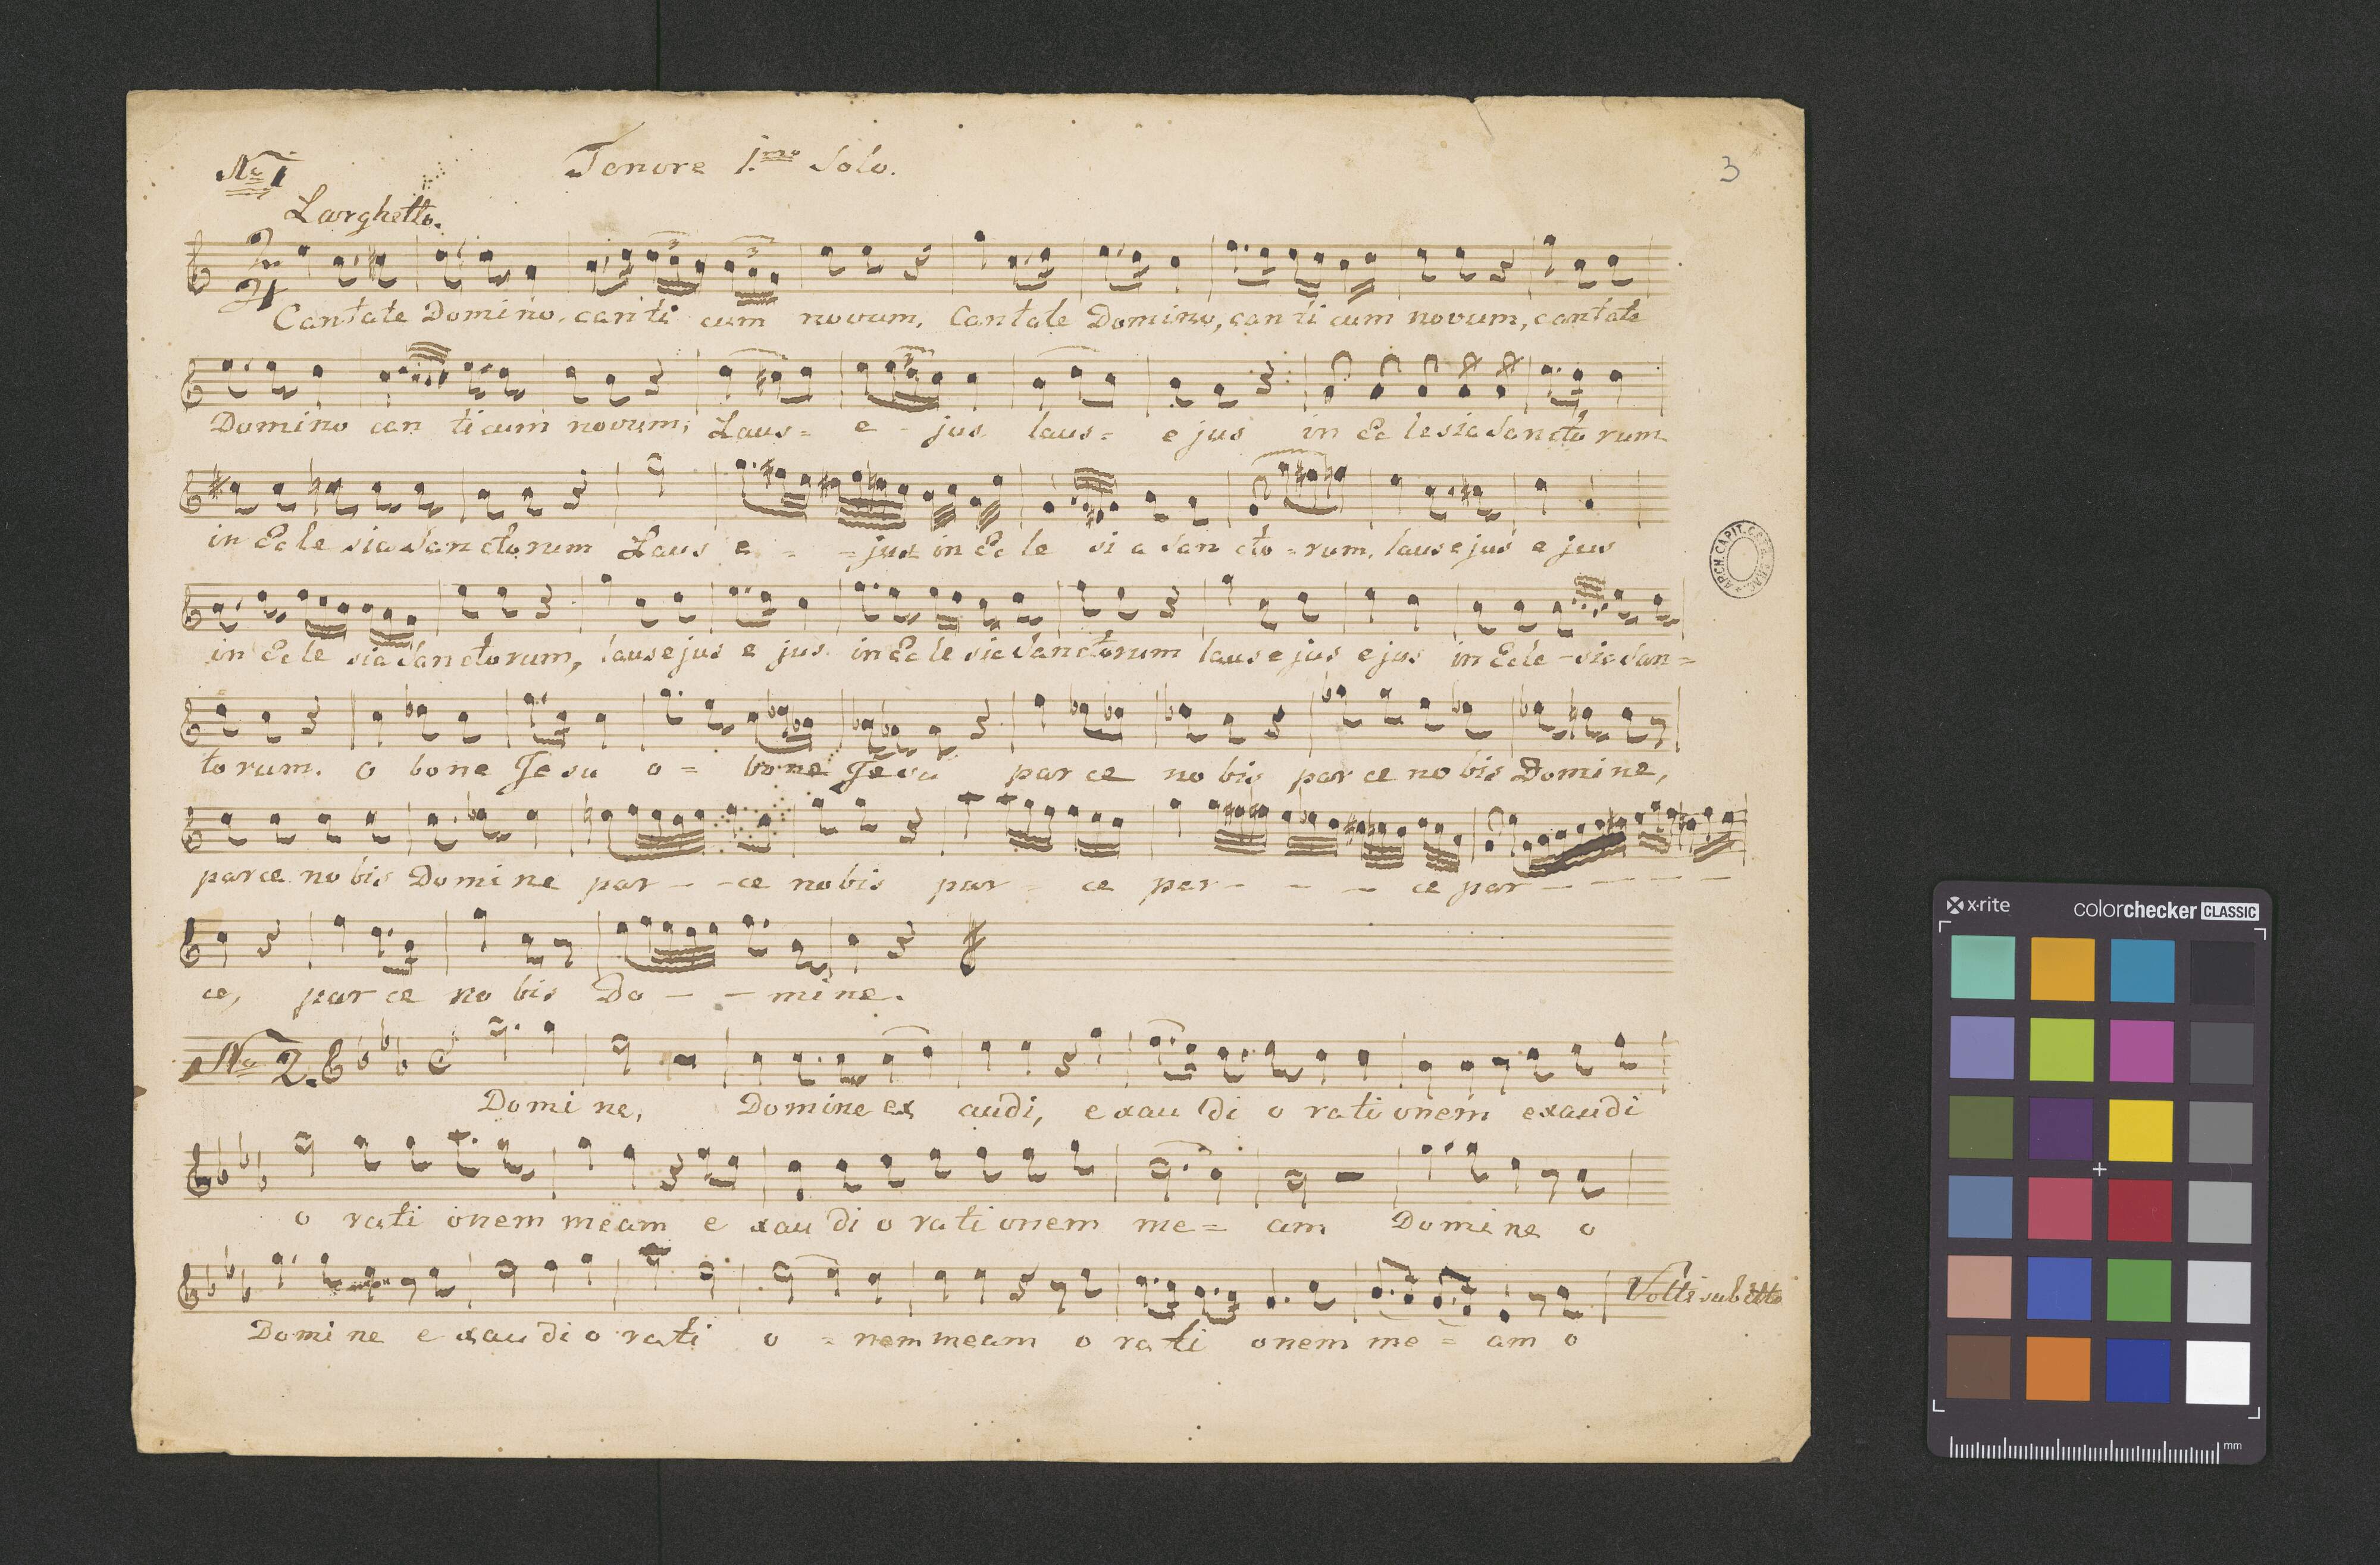 Tenore 1.mo Solo.
3
No 1
Larghetto.
Cantate Domino. canti cum novum, Cantate Domino, canti cum novum, cantate
Domino can ticum novum; Laus = e - jus laus = ejus in Ec lesia Sancto rum
in Ec le sia Sanctorum Laus e - - = jus in Ec le si a San cto = rum, laus ejus ejus
in Ec le sia Sanctorum, laus ejus e jus in Ec le sia Sanctorum laus ejus ejus in Ecle - sia San =
torum. o bone Jesu o = bone Jesu par ce no bis par ce no bis Domine,
parce no bis Domine par - - ce nobis par - ce par - - - ce par - - - - -
ce, par ce no bis Do - - mine.
No 2.
Domine, Domine ex audi, exau di o rati onem exaudi
o rati onem meam e xau di o rati onem me = am Domine o
Domi ne e xau di o rati o = nem meam o rati onem me = am o
Volti subitto
ARCH. CAPIT.
x·rite
colorchecker CLASSIC
mm